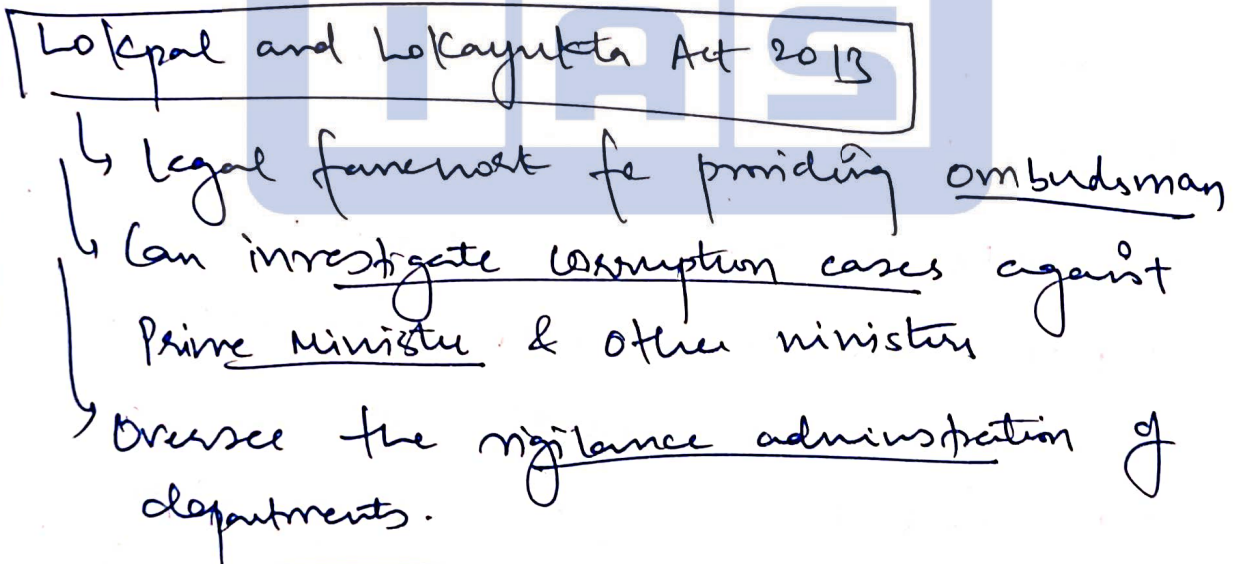 IAS
Lokpal and Lokayukta Act 2013
↳ legal framework for providing ombudsman
↳ Can investigate corruption cases against
Prime Minister & other ministers
↳ Oversee the vigilance administration of
departments.